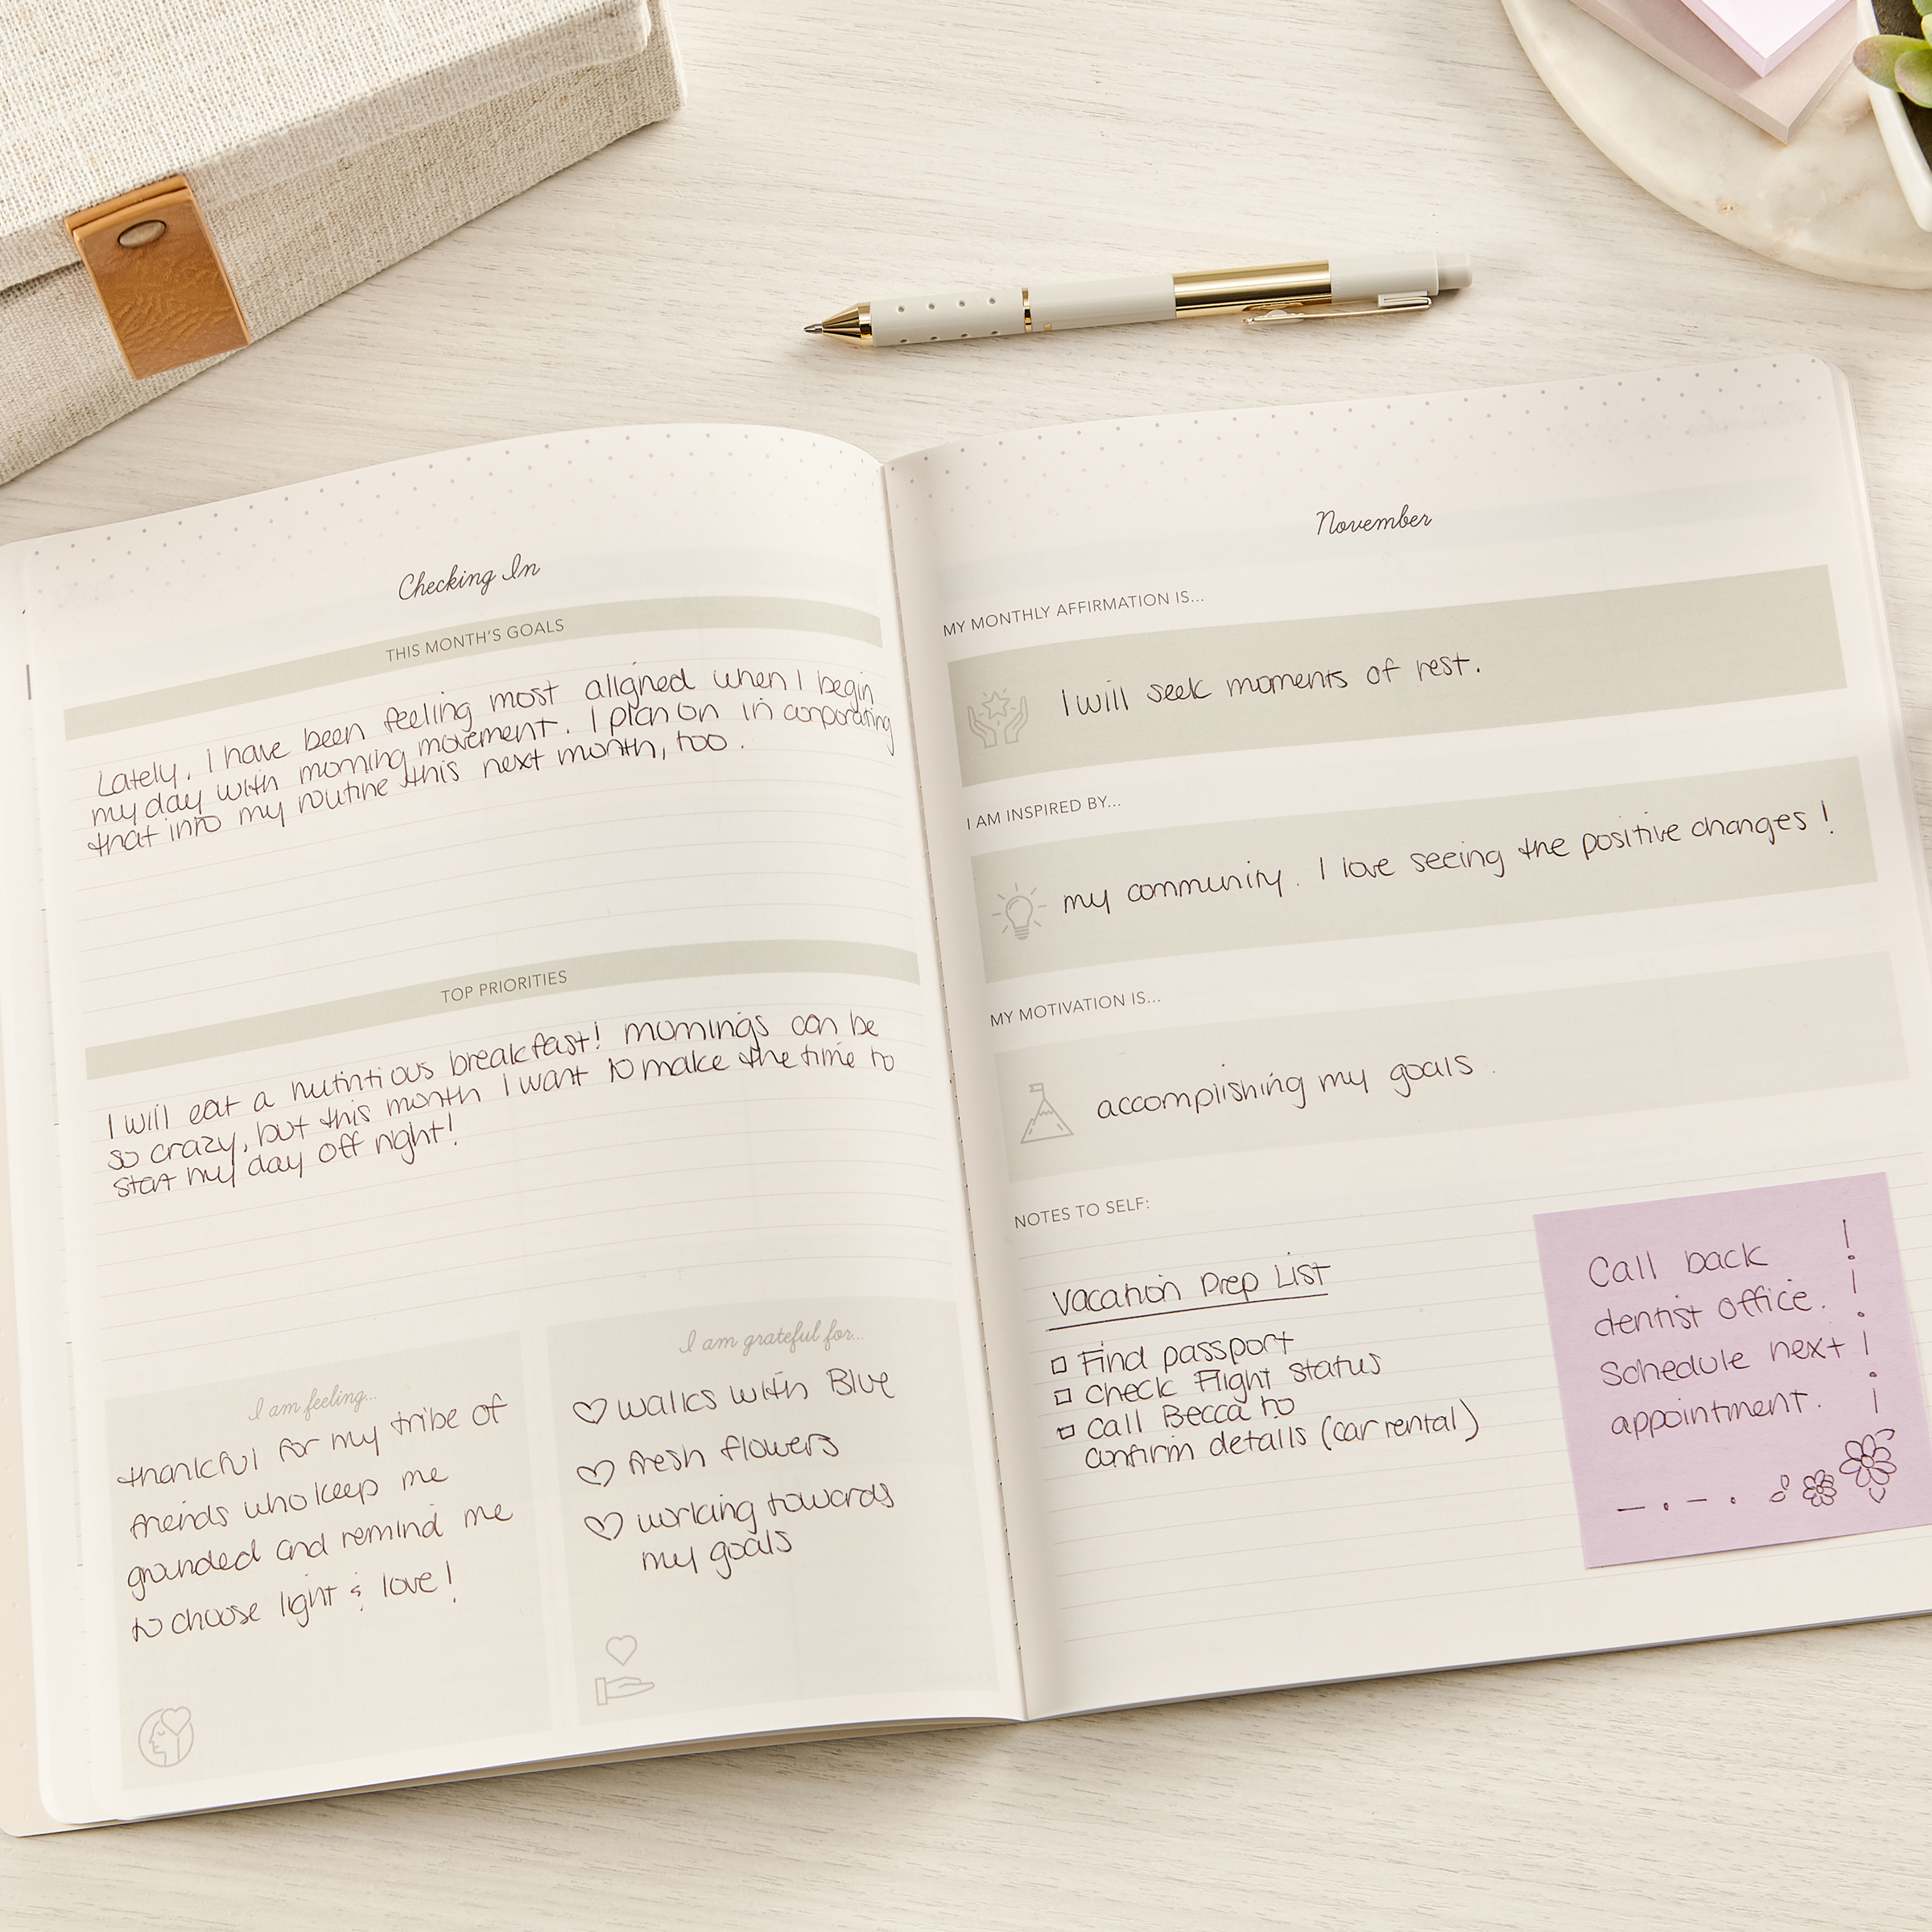 Checking In
THIS MONTH'S GOALS
Lately, I have been feeling most aligned when I begin
my day with morning movement. I plan on in corporating
that into my routine this next month, too.
TOP PRIORITIES
I will eat a nutritious breakfast! mornings can be
so crazy, but this month I want to make the time to
start my day off right!
I am feeling...
thankful for my tribe of
friends who keep me
grounded and remind me
to choose light & love!
I am grateful for...
walks with Blue
fresh flowers
working towards
my goals
November
MY MONTHLY AFFIRMATION IS...
I will seek moments of rest.
I AM INSPIRED BY...
my community. I love seeing the positive changes!
MY MOTIVATION IS...
accomplishing my goals.
NOTES TO SELF:
Vacation Prep List
Find passport
Check Flight Status
Call Becca to
confirm details (car rental)
Call back
dentist office.
Schedule next
appointment.